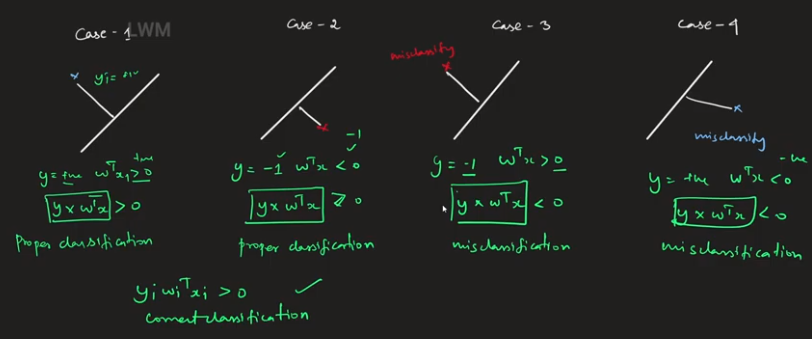 Case - 1
LWM
yi = +ive
y = +ive wᵀxi > 0
+ive
y × wᵀx > 0
Proper classification
Case - 2
-1
y = -1 ✓ wᵀx < 0 ✓
y × wᵀx > 0
proper classification
Case - 3
misclassify
y = -1 wᵀx > 0
y × wᵀx < 0
misclassification
Case - 4
misclassify
-ive
y = +ive wᵀx < 0
y × wᵀx < 0
misclassification
yi wiᵀxi > 0 ✓
correct classification